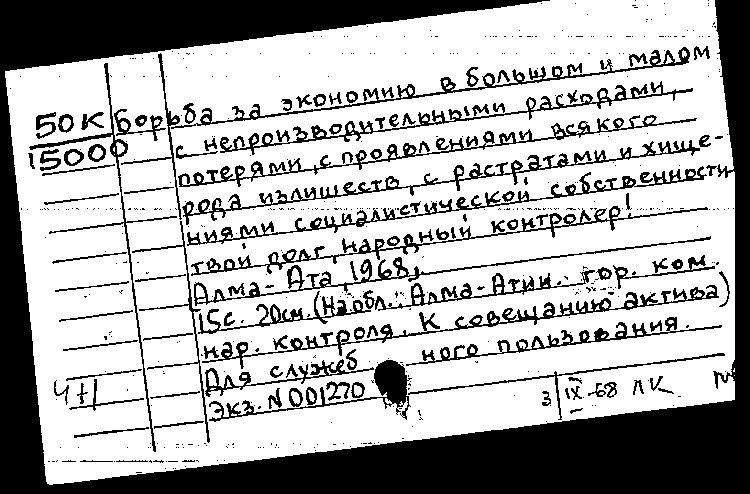 50К Борьба за экономию в большом и малом
15000 с непроизводительными расходами,
потерями, с проявлениями всякого
рода излишеств, с растратами и хище-
ниями социалистической собственности
твой долг, народный контролер!
Алма-Ата, 1968,
15с. 20см. (На обл.: Алма-Атин. гор. ком.
нар. контроля. К совещанию актива)
Для служебного пользования.
Экз. N001270
Ч/1
3/IX-68 ЛК